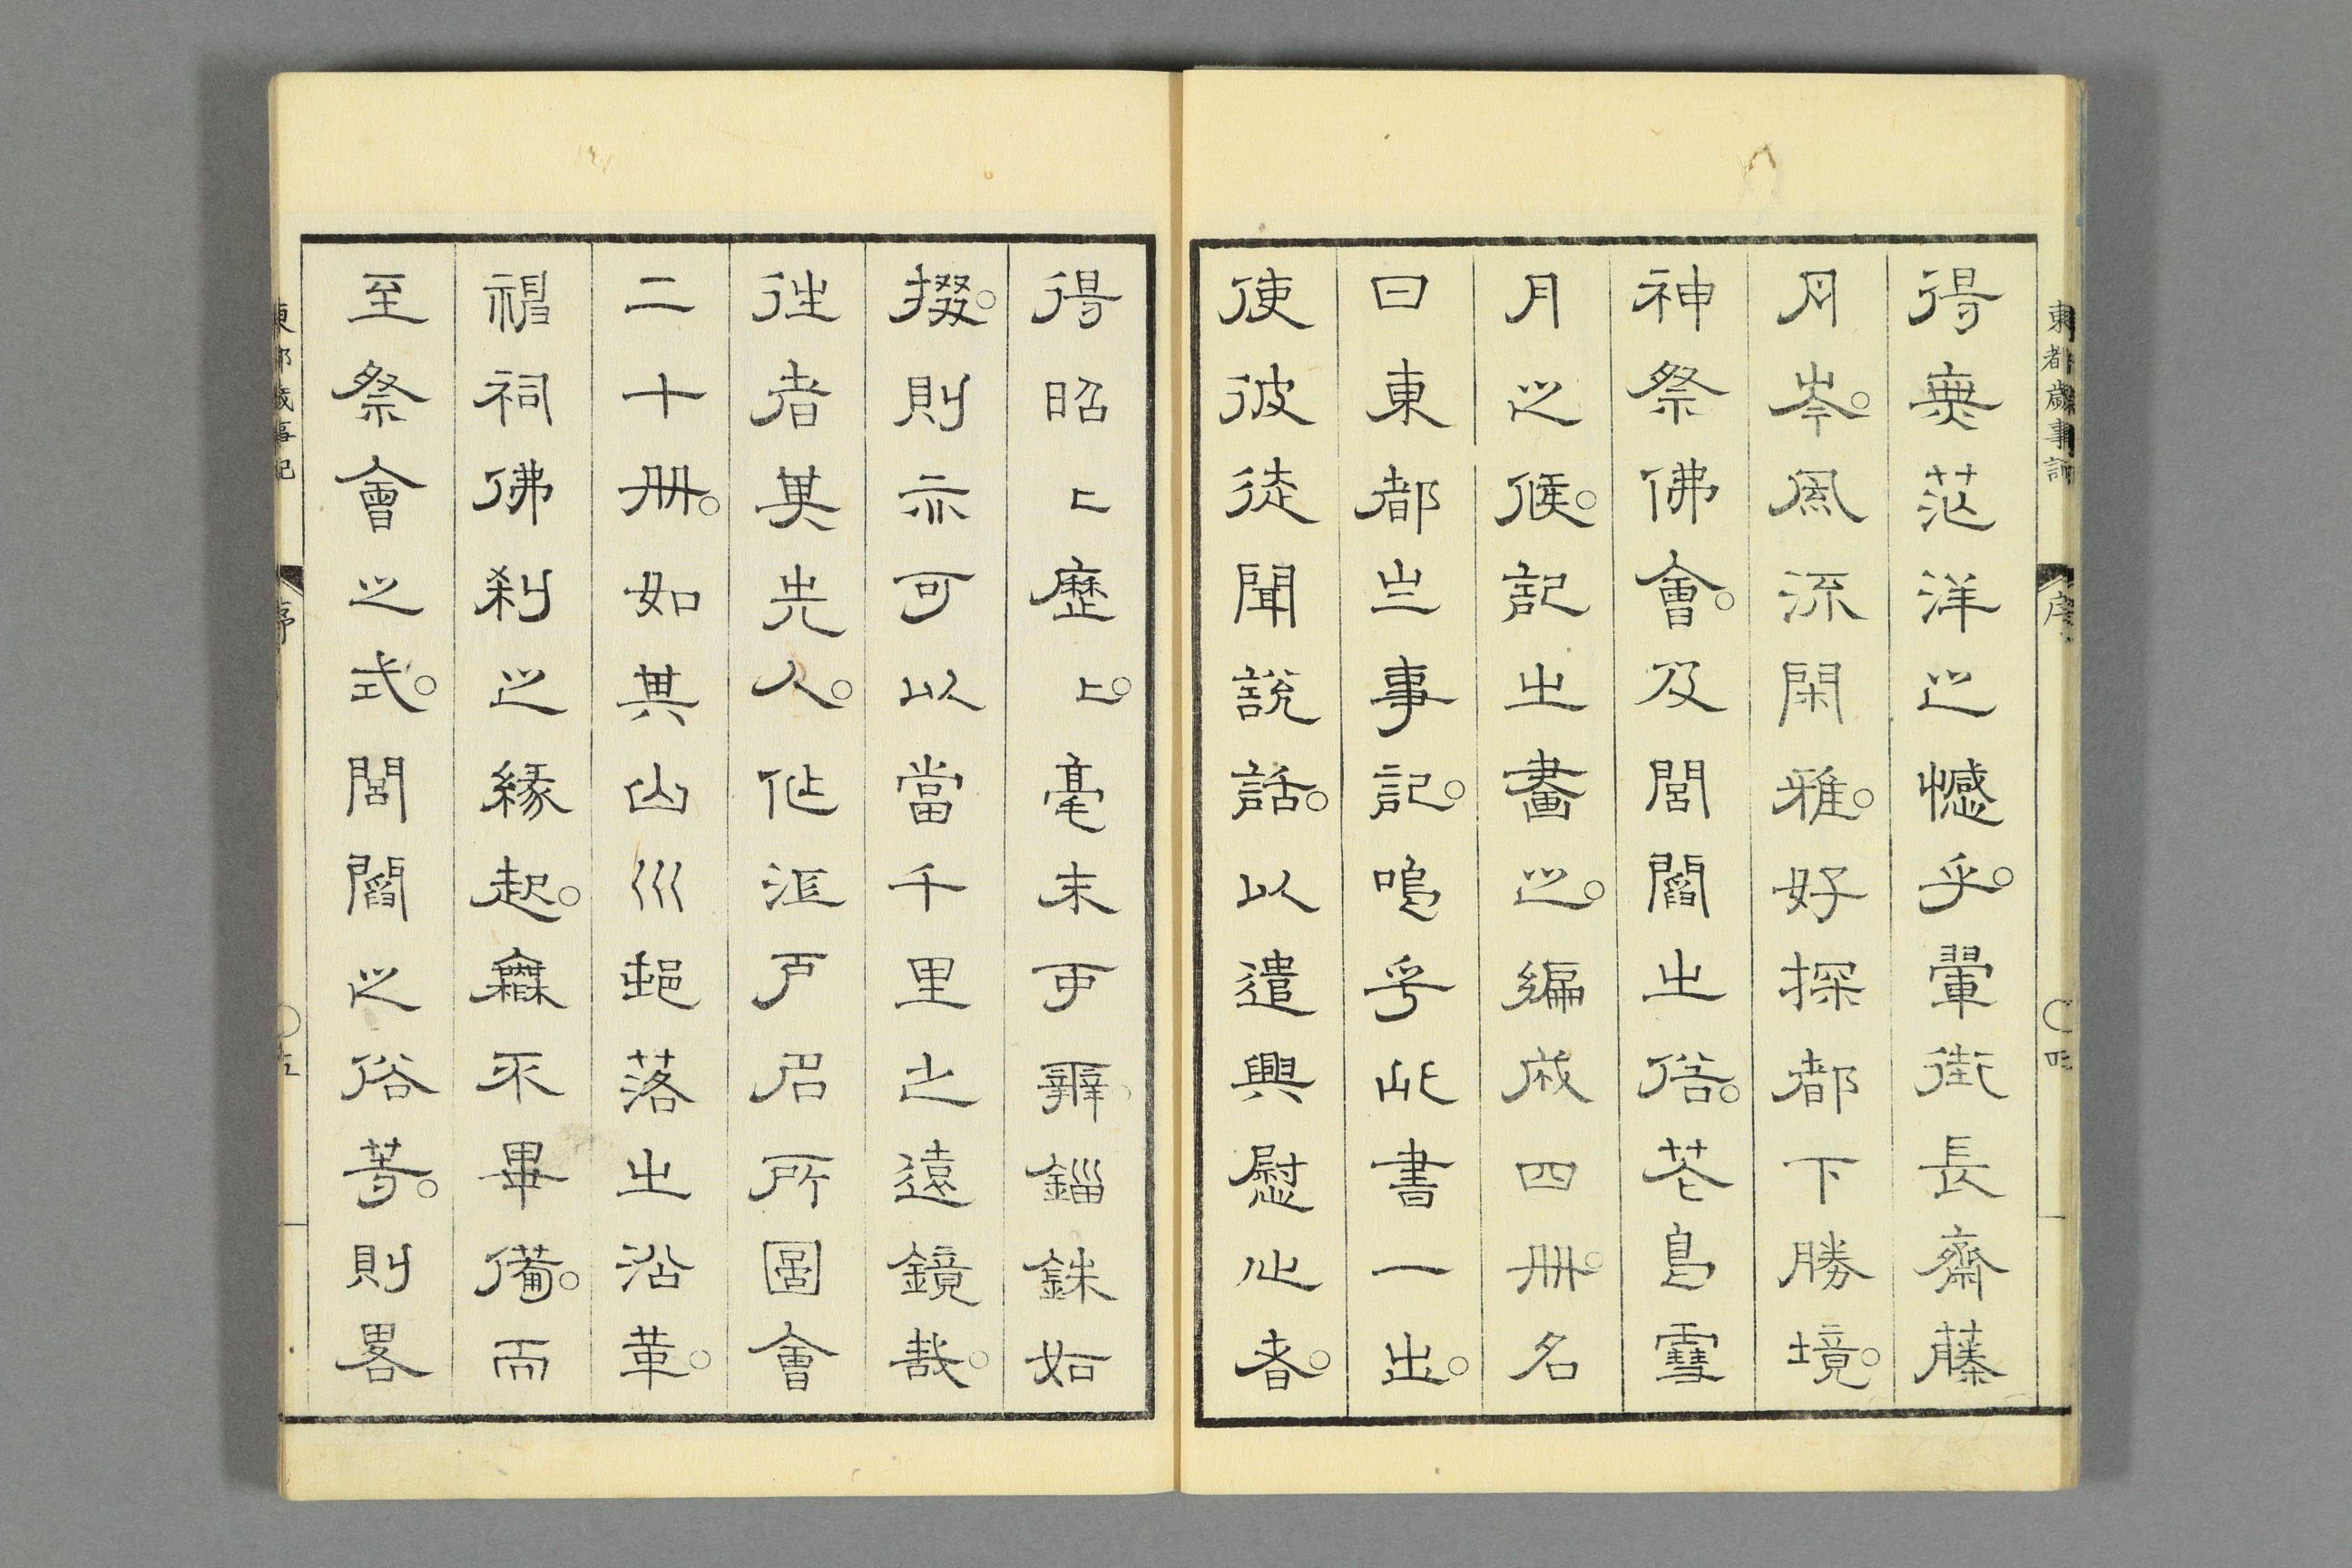 東都歲事記 序 ○四
得無茫洋之憾乎。翬街長齋藤
月岑。風流閑雅。好探都下勝境。
神祭佛會。及閭閻之俗。花鳥雪
月之候。記之畫之。編成四冊。名
曰東都歲事記。嗚乎此書一出。
使彼徒聞說話。以遣興慰心者。
得昭〻歷〻。毫末可辨。錙銖如
掇。則亦可以當千里之遠鏡哉。
往者其先人。作江戶名所圖會
二十冊。如其山川邨落之沿革。
神祠佛刹之緣起。靡不畢備。而
至祭會之式。閭閻之俗等。則畧
東都歲事記 序 ○五